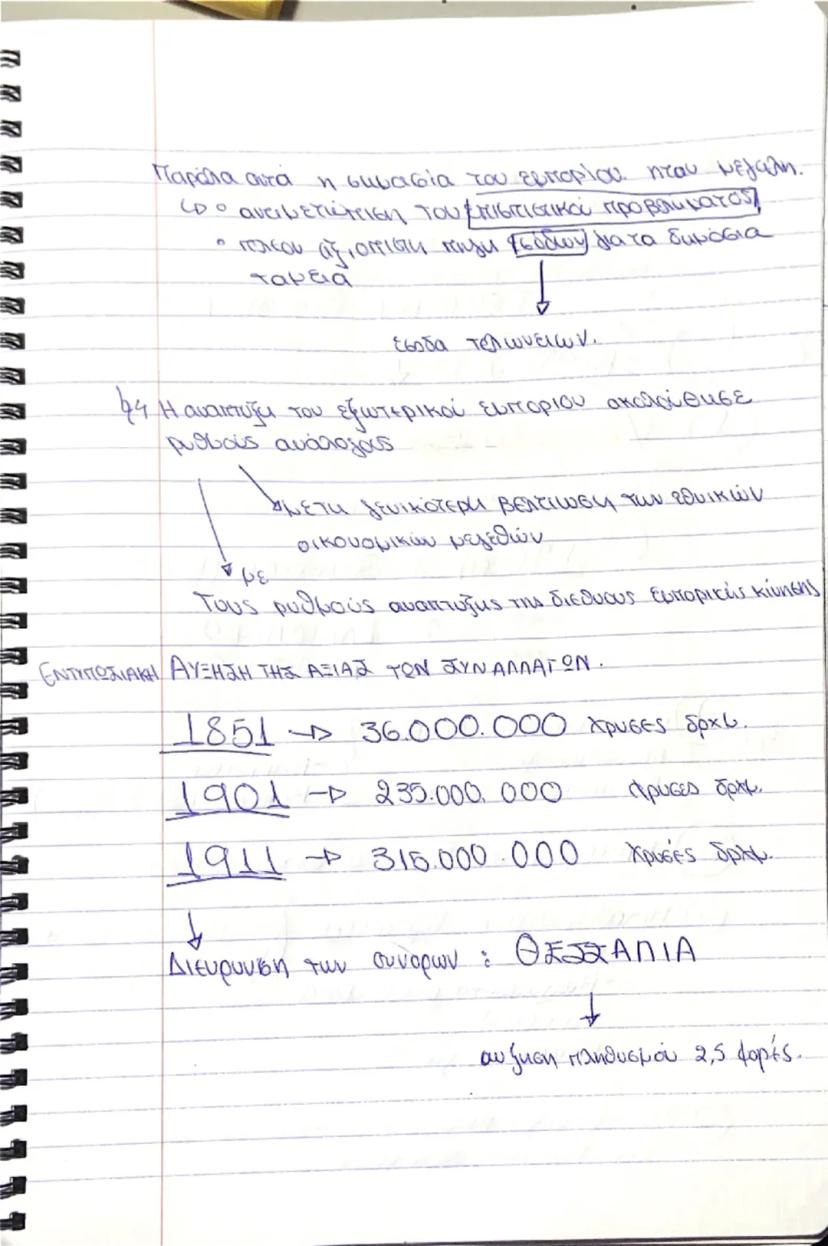 Παρόλα αυτά η σημασία του εμπορίου ηταν μεγάλη.
↳ ∘ αντιμετώπιση του επισιτιστικού προβλήματος
∘ πλέον αξιόπιστη πηγή εσόδων για τα δημόσια
ταμεία
↓
έσοδα τελωνείων.
§4 Η αναπτυξη του εξωτερικού εμποριου ακολούθησε
ρυθμούς ανάλογους
με τη γενικότερη βελτιωση των εθνικών
οικονομικών μεγεθών
με
Τους ρυθμούς αναπτυξης της διεθνους εμπορικής κίνησης
ΕΝΤΥΠΩΣΙΑΚΗ ΑΥΞΗΣΗ ΤΗΣ ΑΞΙΑΣ ΤΩΝ ΣΥΝΑΛΛΑΓΩΝ.
1851 → 36.000.000 χρυσες δρχμ.
1901 → 235.000.000 χρυσες δρχμ.
1911 → 315.000.000 χρυσές δρχμ.
↓
Διευρυνση των συνορων : ΘΕΣΣΑΛΙΑ
↓
αυξηση πληθυσμού 2,5 φορές.